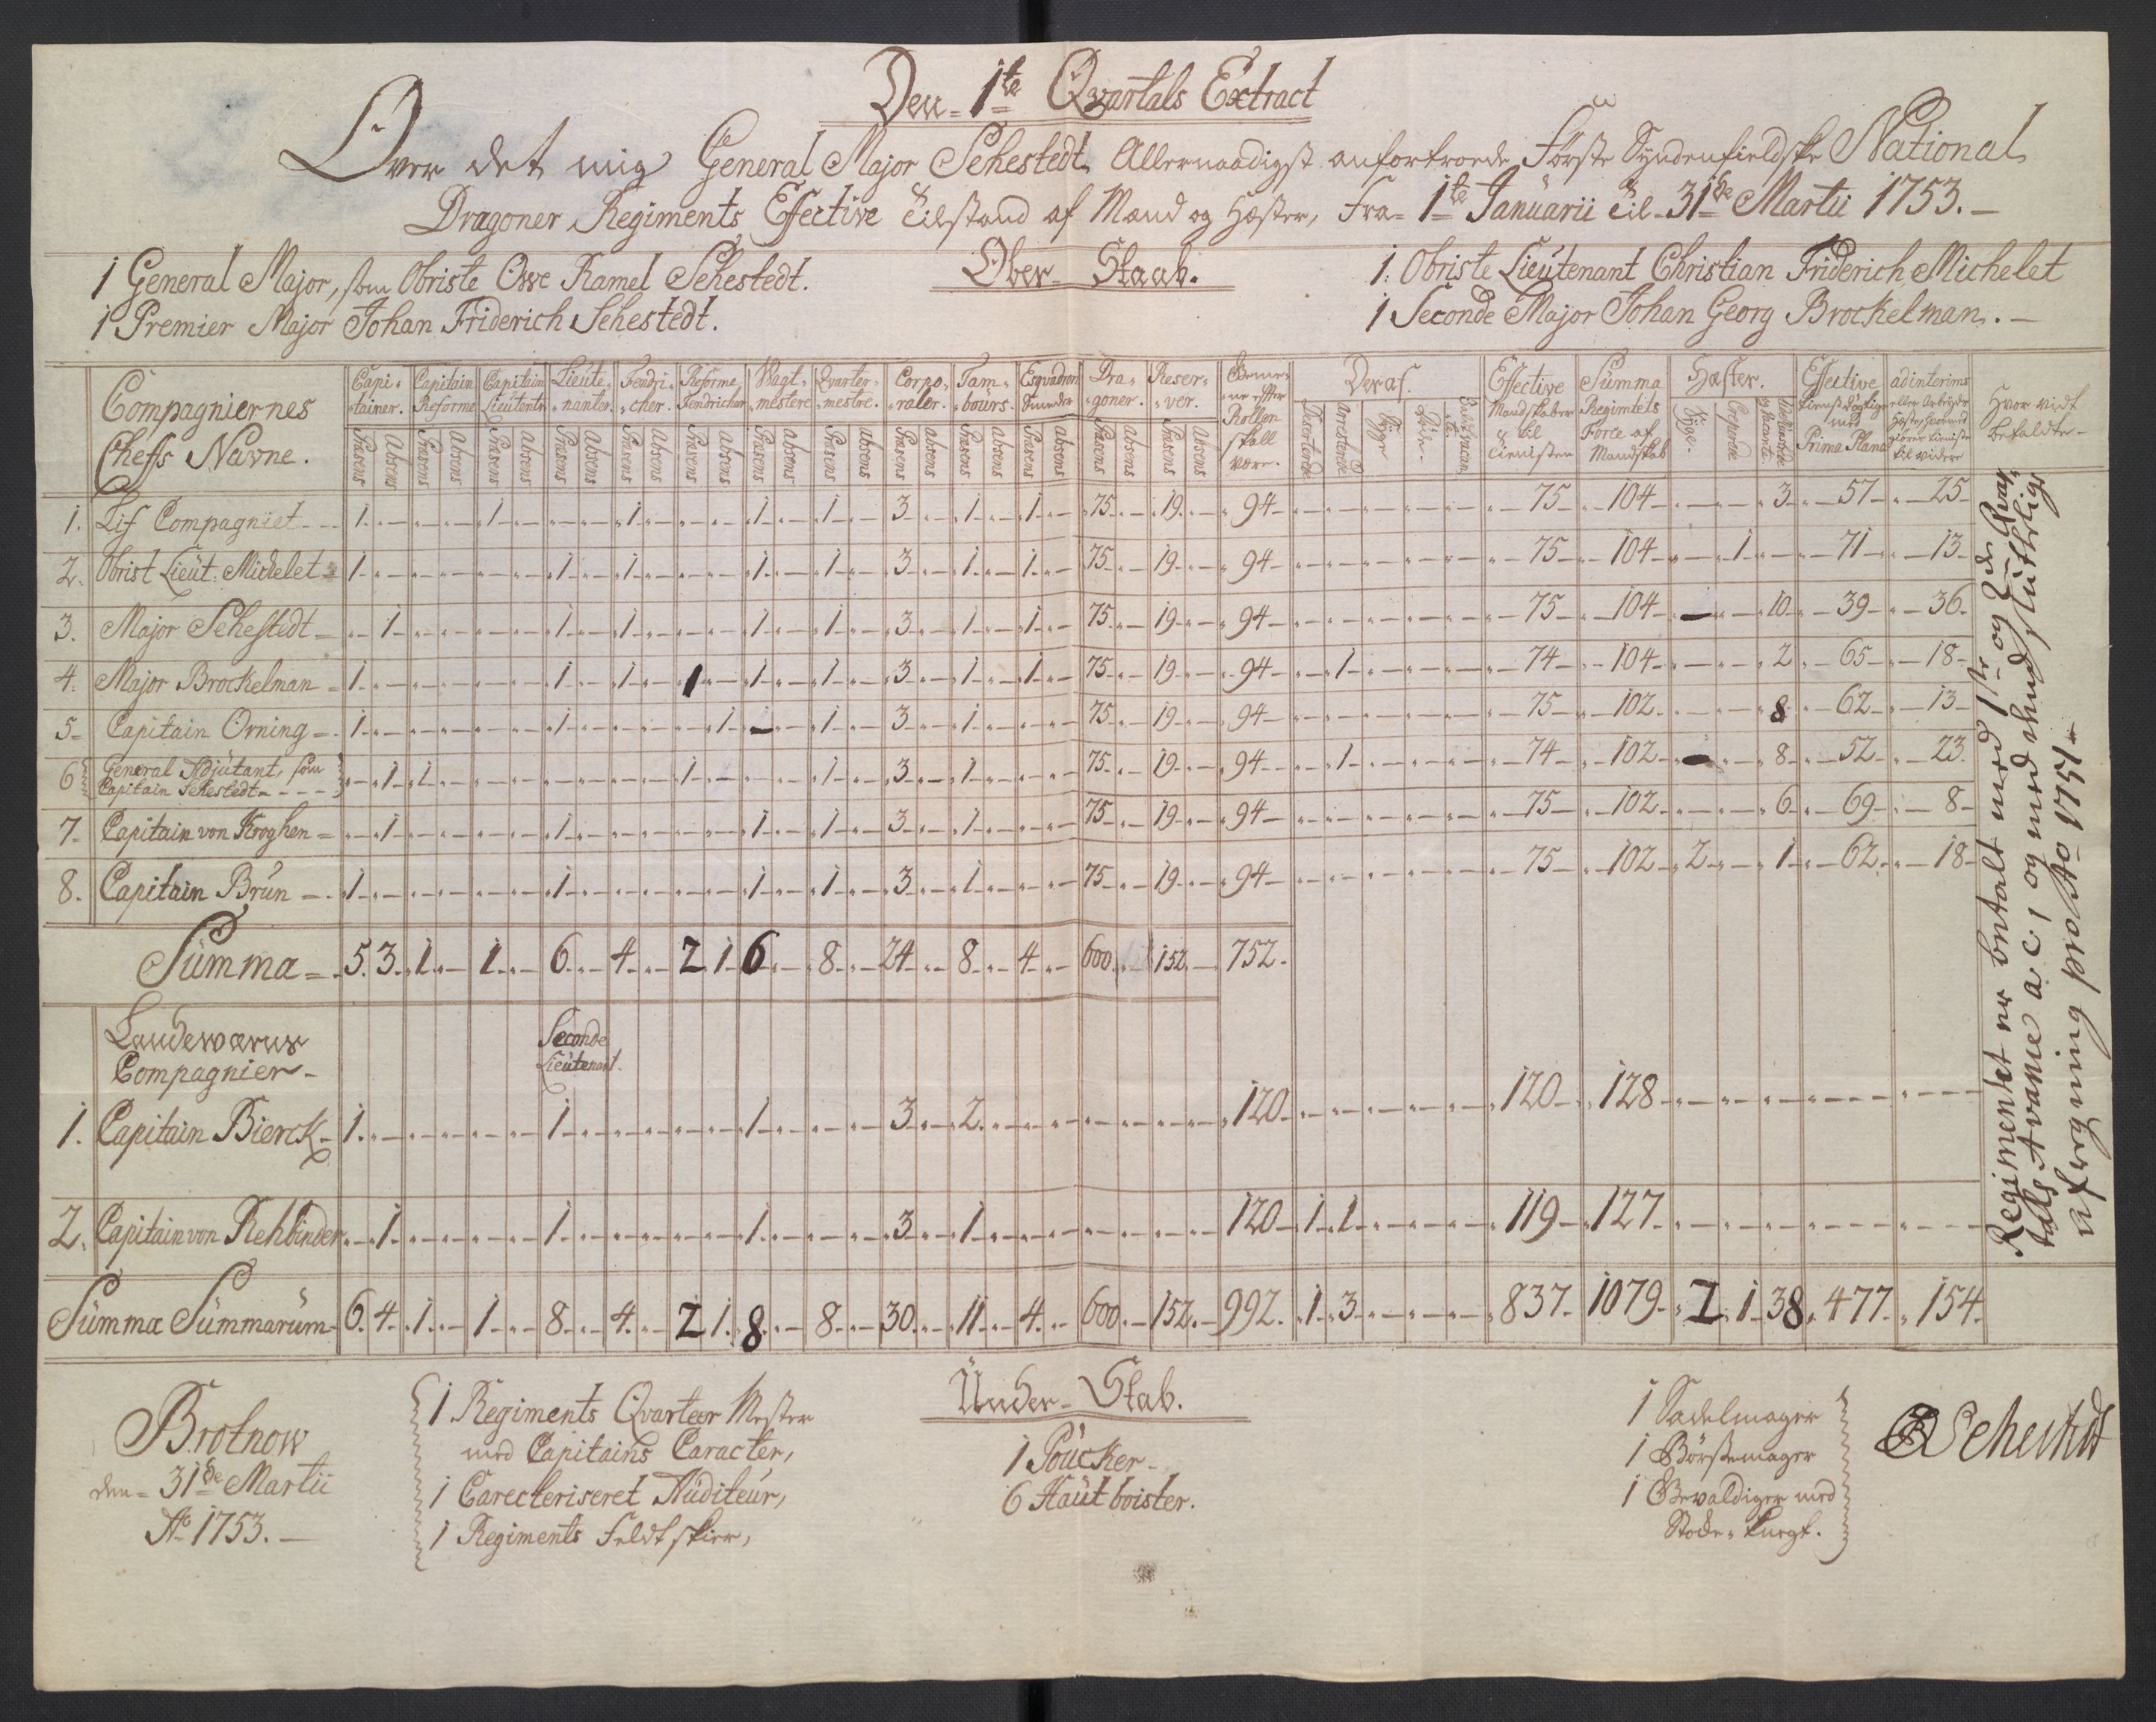 Den 1te Qvartals Extract
Over det mig General Major Sehestedt Allernaadigst anfortroede Første Syndenfieldske National
Dragoner Regiments Effective Tilstand af Mand og Hæster, Fra 1te Januarii til 31de Martii 1753.
Ober Staab.
1 General Major, som Obriste Owe Ramel Sehestedt.
1 Premier Major Johan Friderich Sehestedt.
1. Obriste Lieutenant Christian Friderich Michelet
1 Seconde Major Johan Georg Brockelman.
Compagniernes Cheffs Navne. Capitainer. Capitain Reforme Capitain Lieutents Lieutenanter. Fendricher. Reforme Fendricher Wagtmestere Qvartermestre. Corporaler. Tambours. Esqvadron Smeder Dragoner. Reserver. Gemene effter Rollen skall være. Deraf. Effective Mandskaber til Tienisten Summa Regimtets Force af Mandskab Hæster. Effective Tienstdygtige med Prima Plana ad interims Hvor vidt befaldte
Præsens Absens Præsens Absens Præsens Absens Præsens Absens Præsens Absens Præsens Absens Præsens Absens Præsens Absens Præsens Absens Præsens Absens Præsens Absens Præsens Absens Præsens Absens Deserterede Arresterede Syge Døde Syge. Creperede
1. Lif Compagniet 1 1 1 1 1 3 1 1 75 19 94 75 104 3 57 25
2. Obrist Lieut: Michelet 1 1 1 1 1 3 1 1 75 19 94 75 104 1 71 13
3. Major Sehestedt 1 1 1 1 1 3 1 1 75 19 94 75 104 10 39 36
4. Major Brockelman 1 1 1 1 1 1 3 1 1 75 19 94 1 74 104 2 65 18
5 Capitain Orning 1 1 1 1 3 1 75 19 94 75 102 8 62 13
6 General Adjutant, som Capitain Sehestedt 1 1 1 1 3 1 75 19 94 1 74 102 8 52 23
7 Capitain von Kroghen 1 1 1 1 3 1 75 19 94 75 102 6 69 8
8. Capitain Brun 1 1 1 1 3 1 75 19 94 75 102 2 1 62 18
Summa 5 3 1 1 6 4 2 1 6 8 24 8 4 600 152 752
Landeværns
Compagnier
Seconde
Lieutenant.
1. Capitain Bierck 1 1 1 3 2 120 120 128
2. Capitain von Rehbinder 1 1 1 3 1 120 1 1 119 127
Summa Summarum 6 4 1 1 8 4 2 1 8 8 30 11 4 600 152 992 1 3 837 1079 2 1 38 477 154
Regimentet er betalt med 1ste og 2de Qvar
tals Avance a c, og med Mund sluthelig
afregning pro Ao 1751
Brotnow
den 31de Martii
Ao 1753.
1 Regiments Qvarteer Mester
med Capitains Caracter,
1 Carecteriseret Auditeur,
1 Regiments Feldtskier,
Under Stab.
1 Poucker
6 Hautboister.
1 Sadelmager
1 Børstemager
1 Gevaldiger med
Stocke Knegt.
Sehestedt